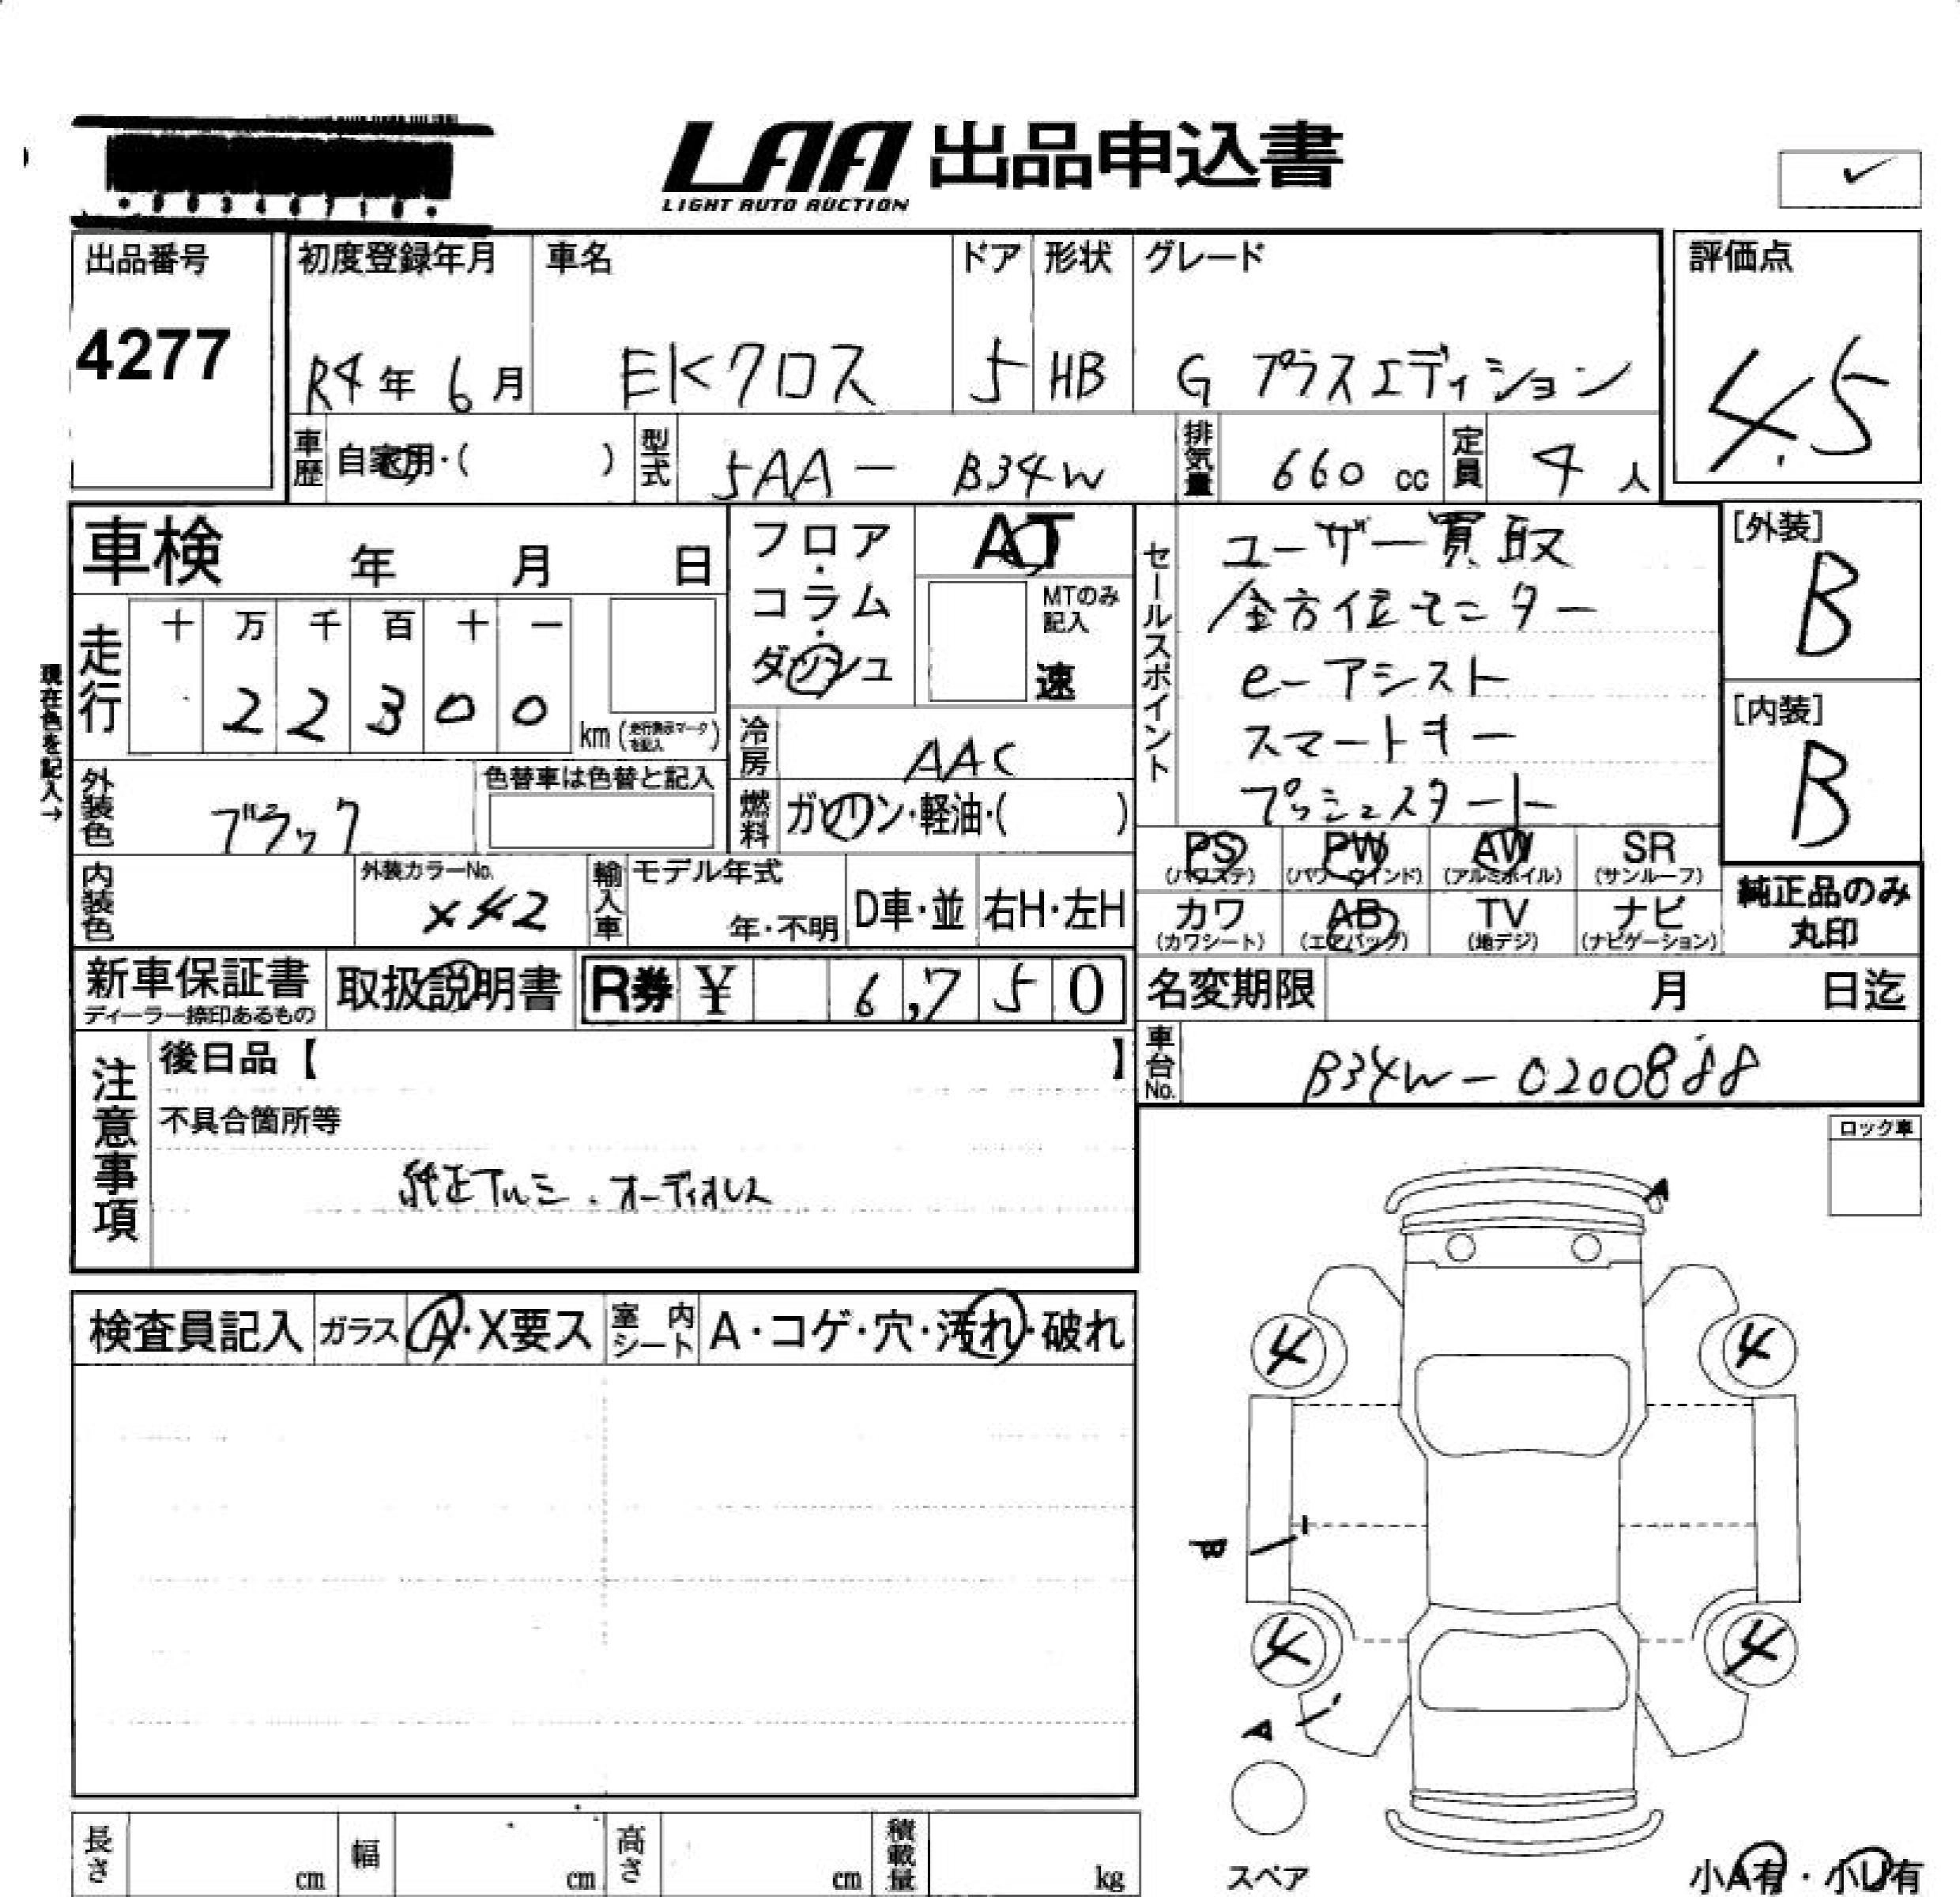 LAA 出品申込書
LIGHT AUTO AUCTION
出品番号
4277
初度登録年月
R4年 6月
車名
EKクロス
ドア
5
形状
HB
グレード
G プラスエディション
評価点
4.5
車歴
自家用・( )
型式
5AA - B34W
排気量
660 cc
定員
4 人
車検 年 月 日
現在色を記入→
走行
十 万 千 百 十 一
2 2 3 0 0
km(走行表示マークを記入)
フロア・コラム・ダッシュ
AT
MTのみ記入
速
冷房
AAC
燃料
ガソリン・軽油・( )
セールスポイント
ユーザー買取
全方位モニター
e-アシスト
スマートキー
プッシュスタート
[外装]
B
[内装]
B
外装色
ブラック
色替車は色替と記入
内装色
外装カラーNo.
X42
輸入車
モデル年式
年・不明
D車・並
右H・左H
PS (パワステ)
PW (パワーウインド)
AW (アルミホイル)
SR (サンルーフ)
カワ (カワシート)
AB (エアバッグ)
TV (地デジ)
ナビ (ナビゲーション)
純正品のみ丸印
新車保証書
ディーラー捺印あるもの
取扱説明書
R券 ¥ 6,750
名変期限 月 日迄
車台No.
B34W-0200888
注意事項
後日品【 】
不具合箇所等
純正アルミ.オーディオレス
ロック車
検査員記入
ガラス
A・X要ス
室内シート
A・コゲ・穴・汚れ・破れ
A
4 4
B
4 4
A
スペア
小A有・小U有
長さ cm
幅 cm
高さ cm
積載量 kg